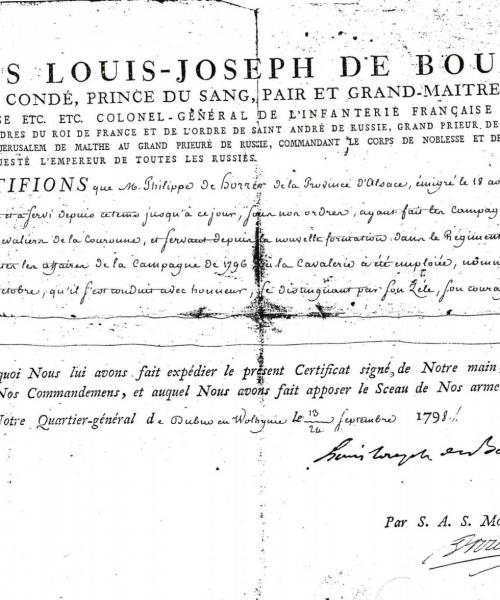 S LOUIS-JOSEPH DE BOU
CONDÉ, PRINCE DU SANG, PAIR ET GRAND-MAITRE
SE ETC. ETC. COLONEL-GÉNÉRAL DE L'INFANTERIE FRANÇAISE
DRES DU ROI DE FRANCE ET DE L'ORDRE DE SAINT ANDRÉ DE RUSSIE, GRAND PRIEUR DE
JERUSALEM DE MALTHE AU GRAND PRIEURÉ DE RUSSIE, COMMANDANT LE CORPS DE NOBLESSE ET DE
JESTÉ L'EMPEREUR DE TOUTES LES RUSSIES.
TIFIONS que M. Philippe de horrer de la Province d'Alsace, émigré le 18 aou
et a servi depuis ce tems jusqu'à ce jour, sous nos ordres, ayant fait les Campag
hevaliers de la Couronne, et servant depuis la nouvelle formation dans le Régiment
les affaires de la Campagne de 1796 où la Cavalerie a été employée, nomm
ctobre, qu'il s'est conduit avec honneur, se distinguant par son Zèle, son coura
quoi Nous lui avons fait expédier le présent Certificat signé de Notre main,
Nos Commandemens, et auquel Nous avons fait apposer le Sceau de Nos arme
Notre Quartier-général de Dubno en Wolhynie le 13/24 Septembre 1798.
Louis Joseph de Bo
Par S. A. S. Mo